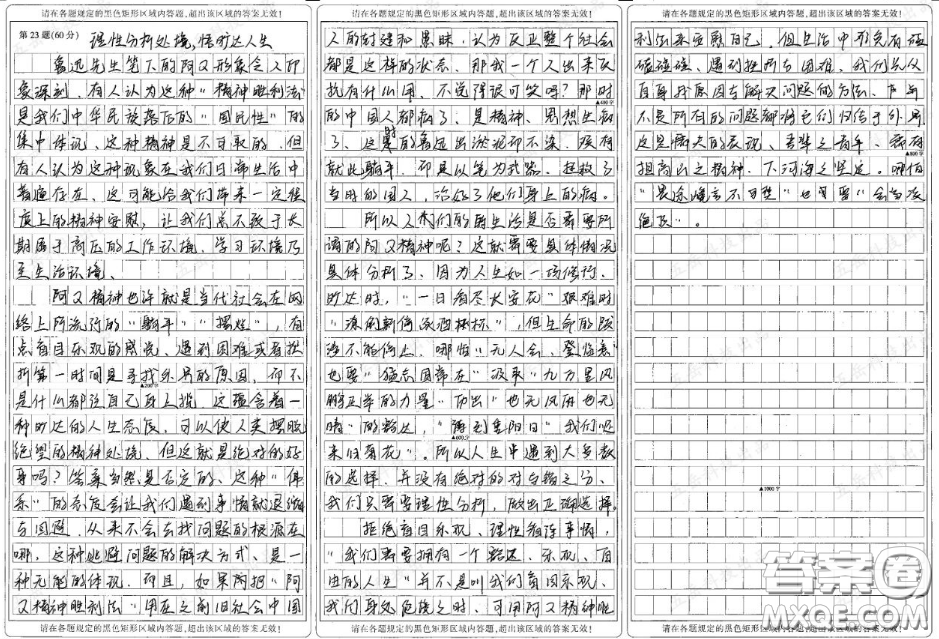 请在各题规定的黑色矩形区域内答题,超出该区域的答案无效!
第23题(60分)
理性分析处境,悟旷达人生
鲁迅先生笔下的阿Q形象令人印
象深刻。有人认为这种"精神胜利法"
是我们中华民族落后的"国民性"的
集中体现、这种精神是不可取的。但
有人认为这种现象在我们日常生活中
普遍存在、这可能给我们带来一定程
度上的精神安慰,让我们总不致于长
期居于高压的工作环境、学习环境乃
至生活环境、
阿Q精神也许就是当代社会在网
络上所流行的"躺平""摆烂",有
点盲目乐观的感觉、遇到困难或者挫
折第一时间是寻找外界的原因,而不
▲200字
是什么都往自己身上揽。这蕴含着一
种旷达的人生态度,可以使人类摆脱
绝望的精神处境、但这就是绝对的好
事吗?答案当然是否定的、这种"佛
系"的态度会让我们遇到事情就退缩
与回避、从来不会去找问题的根源在
哪,这种逃避问题的解决方式、是一
种无能的体现、而且,如果所把"阿
Q精神胜利法"用在之前旧社会中国
请在各题规定的黑色矩形区域内答题,超出该区域的答案无效!
请在各题规定的黑色矩形区域内答题,超出该区域的答案无效!
人的封建和愚昧、认为反正整个社会
都是这样的状态、那我一个人出来反
抗有什么用、不觉得很可笑吗?那时
▲400字
的中国人都病了、是精神、思想生病
了、这时的鲁迅出淤泥而不染,没有
就此躺平、而是以笔为武器、拯救了
当时的国人,治好了他们身上的病。
所以人们的生活是否需要所
谓的阿Q精神呢?这就需要具体情况
具体分析了、因为人生如一场修行、
旷达时,"一日看尽长安花"艰难时
"潦倒新停浊酒杯",但生命的跋
涉不能停止、哪怕"无人会、登临意"
也要"猛志固常在"吸来"九万里风
鹏正举的力量"悟出"也无风雨也无
晴"的豁达,"待到重阳日"我们还
▲600字
来就菊花"。所以人生中遇到大多数
的选择、并没有绝对的对与错之分、
我们只需要理性分析,做出正确选择。
拒绝盲目乐观、理性看待事情,
"我们需要拥有一个豁达、乐观、自
由的人生"并不是叫我们盲目乐观、
我们身处危境之时、可用阿Q精神胜
请在各题规定的黑色矩形区域内答题,超出该区域的答案无效!
请在各题规定的黑色矩形区域内答题,超出该区域的答案无效!
利法来安慰自己。但生活中难免有磕
磕碰碰、遇到挫折与困难、我们先从
自身找原因与解决问题的方法、
不是所有的问题都将它们归结于外界
这是懦夫的表现、吾辈之青年、需有
▲800字
担高山之精神、下河海之坚定。哪怕
▲1000字
请在各题规定的黑色矩形区域内答题,超出该区域的答案无效!
答案圈
MXQE.COM